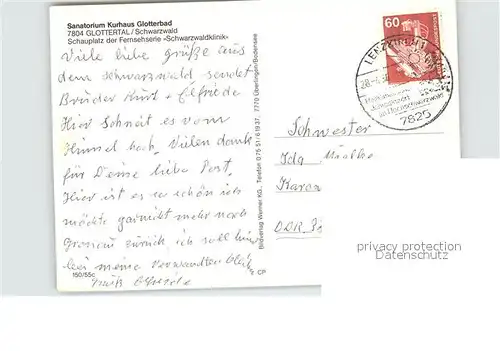 Sanatorium Kurhaus Glotterbad
7804 GLOTTERTAL/Schwarzwald
Schauplatz der Fernsehserie »Schwarzwaldklinik«
Viele liebe Grüße aus
dem schwarzwald sendet
Brüder Kurt + Elfriede
Hier Schneit es vom
Himmel hoch. Vielen dank
für Deine liebe Post.
Hier ist es so schön ich
möchte garnicht mehr nach
zurück, ich soll hier
bei meine Verwandten
150/55c
Bildverlag Werner KG., Telefon 0 75 51 / 6 19 37, 7770 Überlingen/Bodensee
CP
60
7820
Schwester
Ida
DDR
privacy protection
Datenschutz